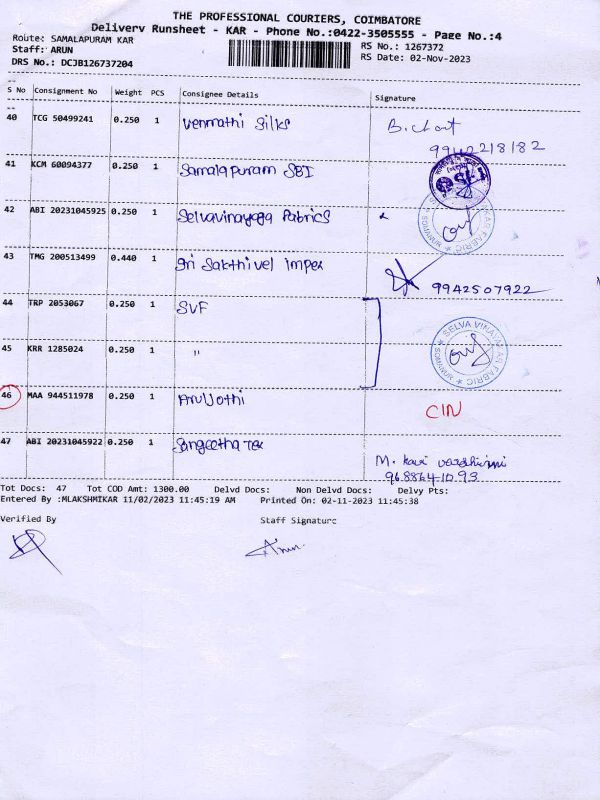 THE PROFESSIONAL COURIERS, COIMBATORE
Delivery Runsheet - KAR - Phone No.:0422-3505555 - Page No.:4
Route: SAMALAPURAM KAR
Staff: ARUN
DRS No.: DCJB126737204
RS No.: 1267372
RS Date: 02-Nov-2023
S No Consignment No Weight PCS Consignee Details Signature
40 TCG 50499241 0.250 1 Venmathi Silks
41 KCM 60094377 0.250 1 Samalapuram SBI
42 ABI 20231045925 0.250 1 Selvavinayaga Fabrics
43 TMG 200513499 0.440 1 Sri Sakthivel impex 9942507922
44 TRP 2053067 0.250 1 SVF
45 KRR 1285024 0.250 1 "
SELVA VINAYAGAR FABRIC
46 MAA 944511978 0.250 1 Arul Jothi CIN
47 ABI 20231045922 0.250 1 Sangeetha Tex
Tot Docs: 47 Tot COD Amt: 1300.00 Delvd Docs: Non Delvd Docs: Delvy Pts:
Entered By :MLAKSHMIKAR 11/02/2023 11:45:19 AM Printed On: 02-11-2023 11:45:38
Verified By Staff Signature
Arun